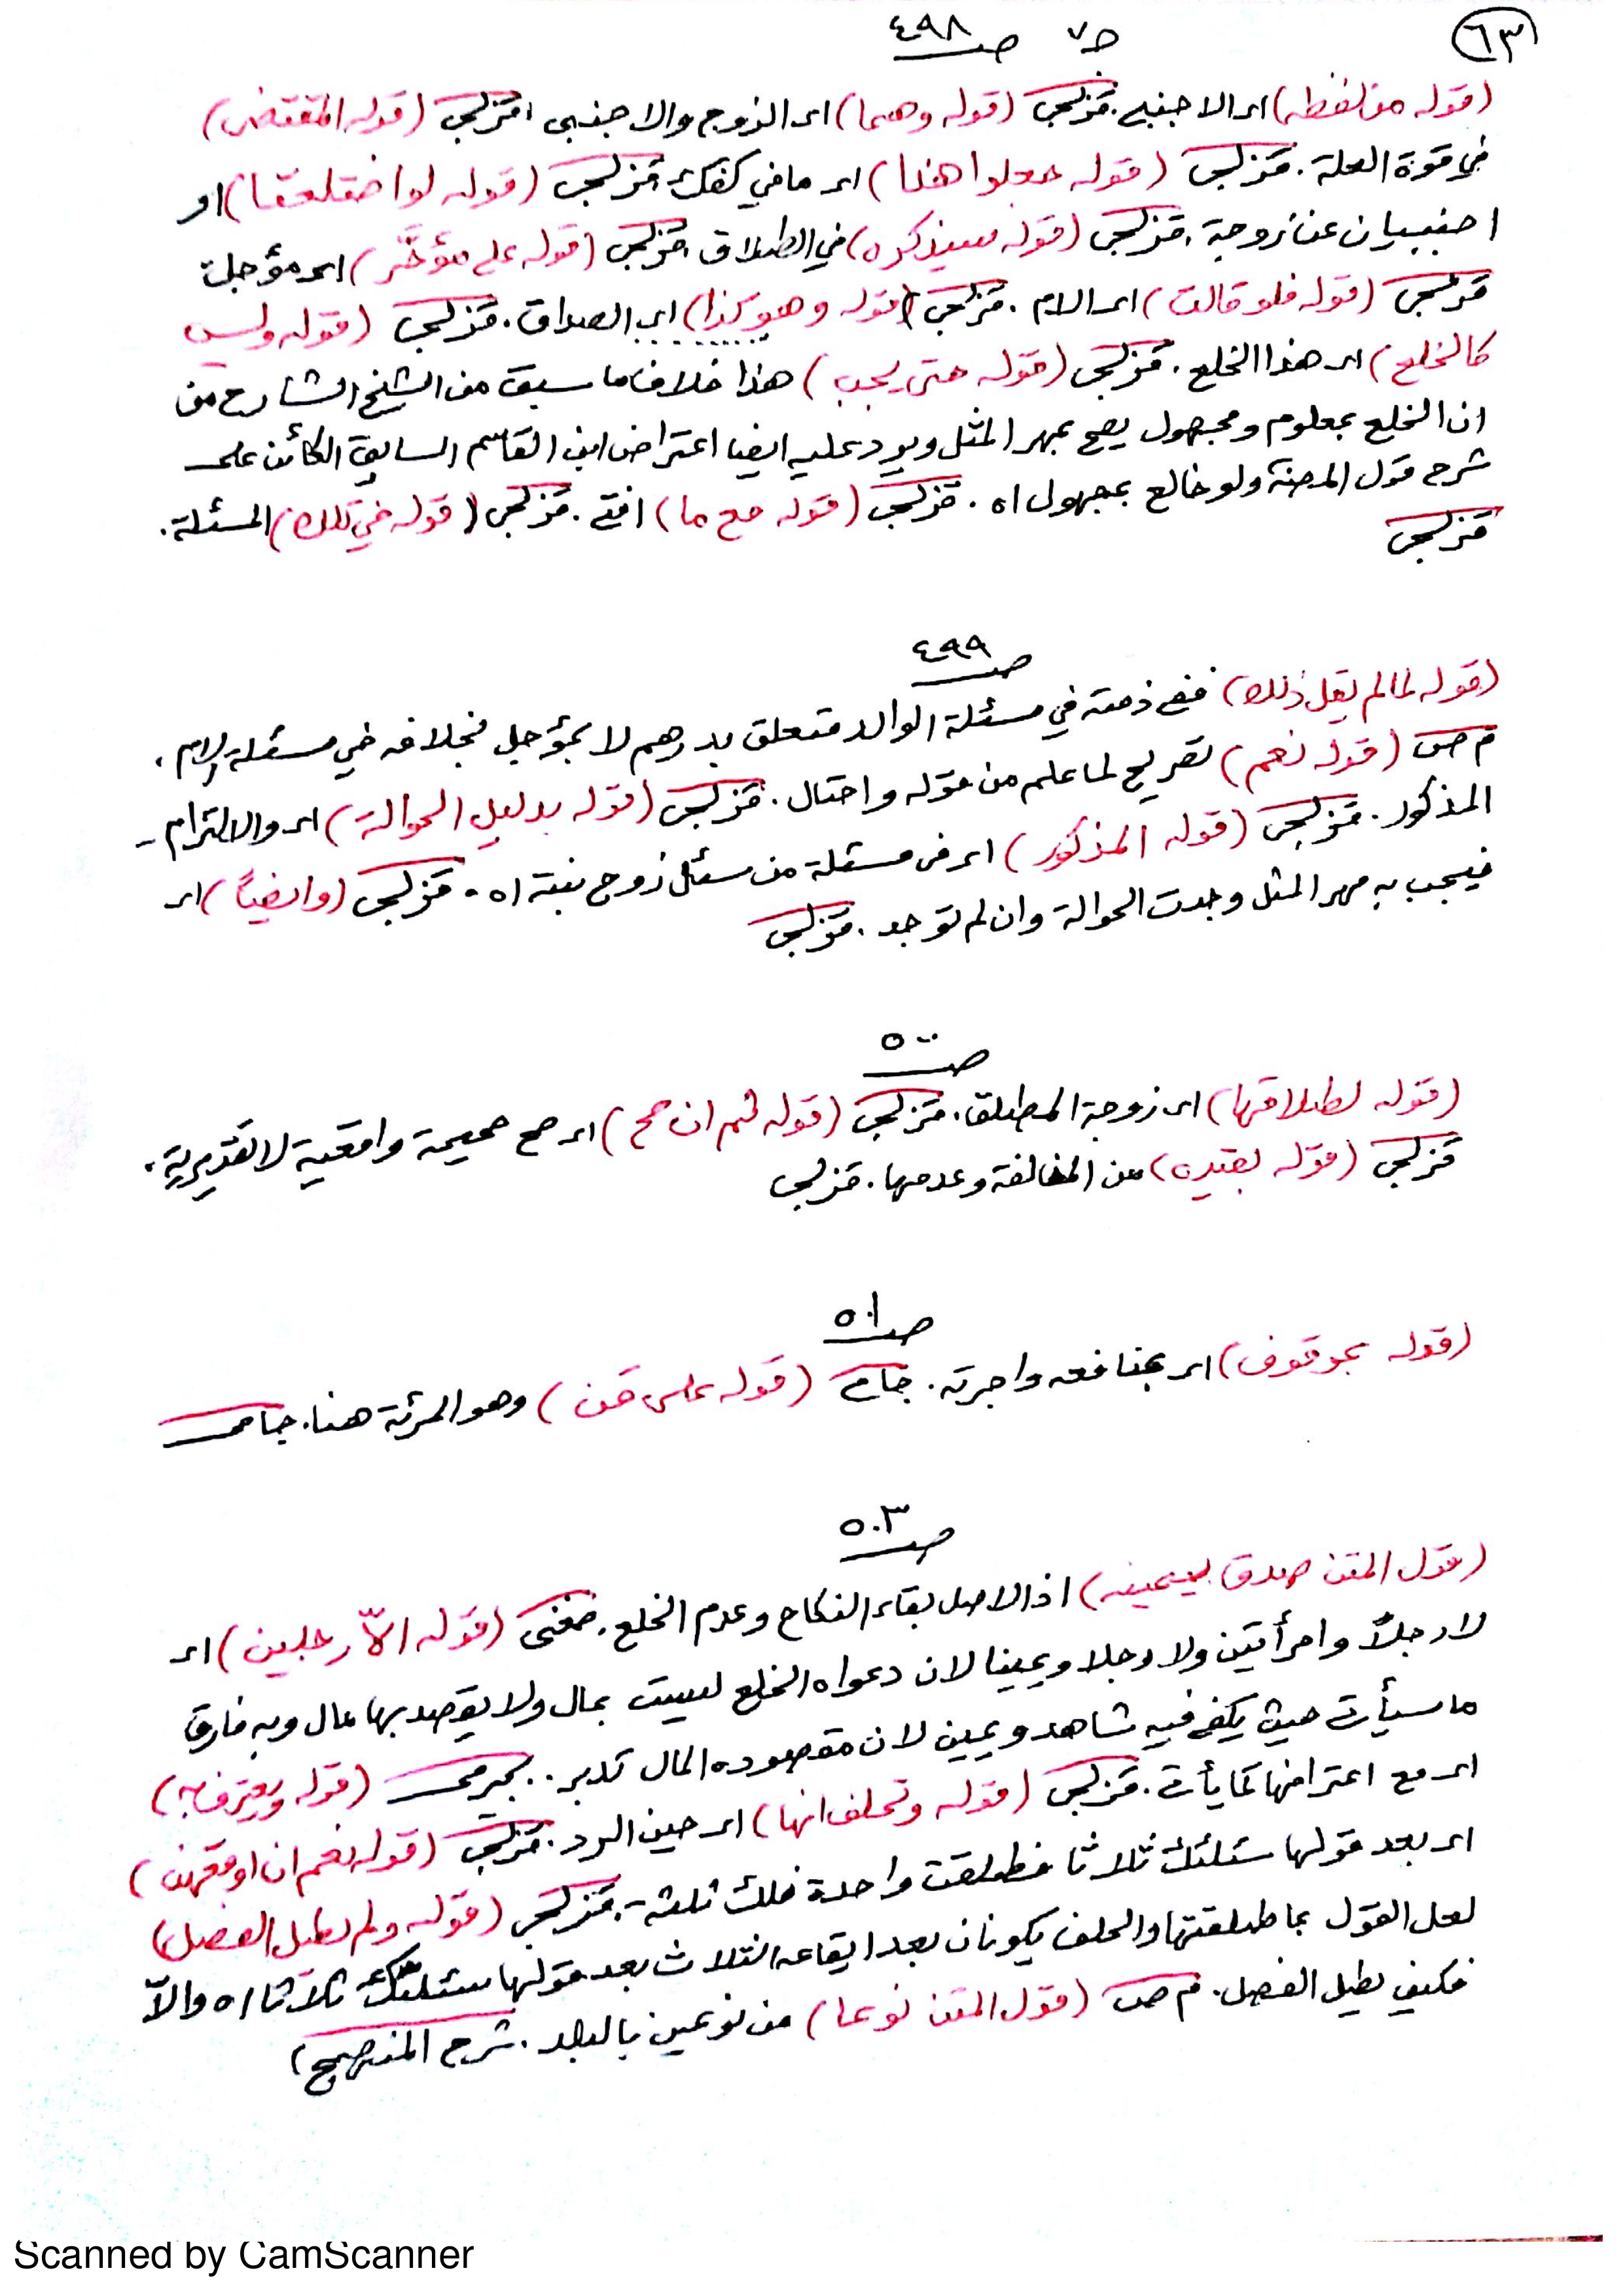 ٦٣
ج٧ ص ٤٩٨
(قوله من لفظه) اى الاجنبي. قزلجى (قوله وهما) اى الزوج والاجنبى. قزلجى (قوله المقتضى)
في قوة العلة. قزلجى (قوله جعلوا هذا) اى ما في كفك. قزلجى (قوله لو اختلعتا) او
اجنبيان عن زوجة. قزلجى (قوله سيذكره) في الطلاق. قزلجى (قوله على مؤخَّر) اى مؤجلة
قزلجى (قوله فلو قالت) اى الام. قزلجى (قوله وهو كذا) اى الصداق. قزلجى (قوله وليس
كالخلع) اى هذا الخلع. قزلجى (قوله حتى يجب) هذا خلاف ما سبق من الشيخ الشارح من
ان الخلع بمعلوم ومجهول يصح بمهر المثل ويرد عليه ايضا اعتراض ابن القاسم السابق الكائن على
شرح قول المصنف ولو خالع بمجهول اه. قزلجى (قوله مع ما) افتى. قزلجى (قوله في تلك) المسئلة.
قزلجى
ص ٤٩٩
(قوله لما لم يقل ذلك) ففى ذمته في مسئلة الوالد متعلق بدرهم لا بمؤجل بخلافه في مسئلة الام.
م ص (قوله نعم) تفريع لما علم من قوله واحتال. قزلجى (قوله بدليل الحوالة) اى والالتزام
المذكور. قزلجى (قوله المذكور) اى فى مسئلة من سئل زوج بنته اه. قزلجى (وايضاً) اى
فيجب به مهر المثل وجدت الحوالة وان لم توجد. قزلجى
ص ٥٠٠
(قوله لطلاقها) اى زوجة المطلق. قزلجى (قوله ثم ان صح) اى صح صحيحة واقعية لا تقديرية.
قزلجى (قوله بقيده) من المخالفة وعدمها. قزلجى
ص ٥٠١
(قوله بموقوف) اى بمنافعه واجرته. جامى (قوله على من) وهو المرئة هنا. جامى
ص ٥٠٣
(قول المتن صدق بيمينه) اذ الاصل بقاء النكاح وعدم الخلع. مغنى (قوله الاّ رجلين) اى
لا رجلاً وامرأتين ولا رجلا ويمينا لان دعواه الخلع ليست بمال ولا يقصد بها مال وبه فارق
ما سيأتى حيث يكفى فيه شاهد ويمين لان مقصوده المال تدبر.. بجيرمى (قوله ويعترف به)
اى مع اعترافها كما يأتى. قزلجى (قوله وتحلف انها) اى حين الرد. قزلجى (قوله نعم ان اوقعهن)
اى بعد قولها سئلتك ثلاثا فطلقت واحدة فلك ثلثه. قزلجى (قوله ولم يطل الفصل)
لعل القول بما طلقتها والحلف يكونان بعد ايقاعه الثلاث بعد قولها سئلتك ثلاثا اه والاّ
فكيف يطيل الفصل. م ص (قول المتن نوعا) من نوعين بالبلد. شرح المنهج
Scanned by CamScanner